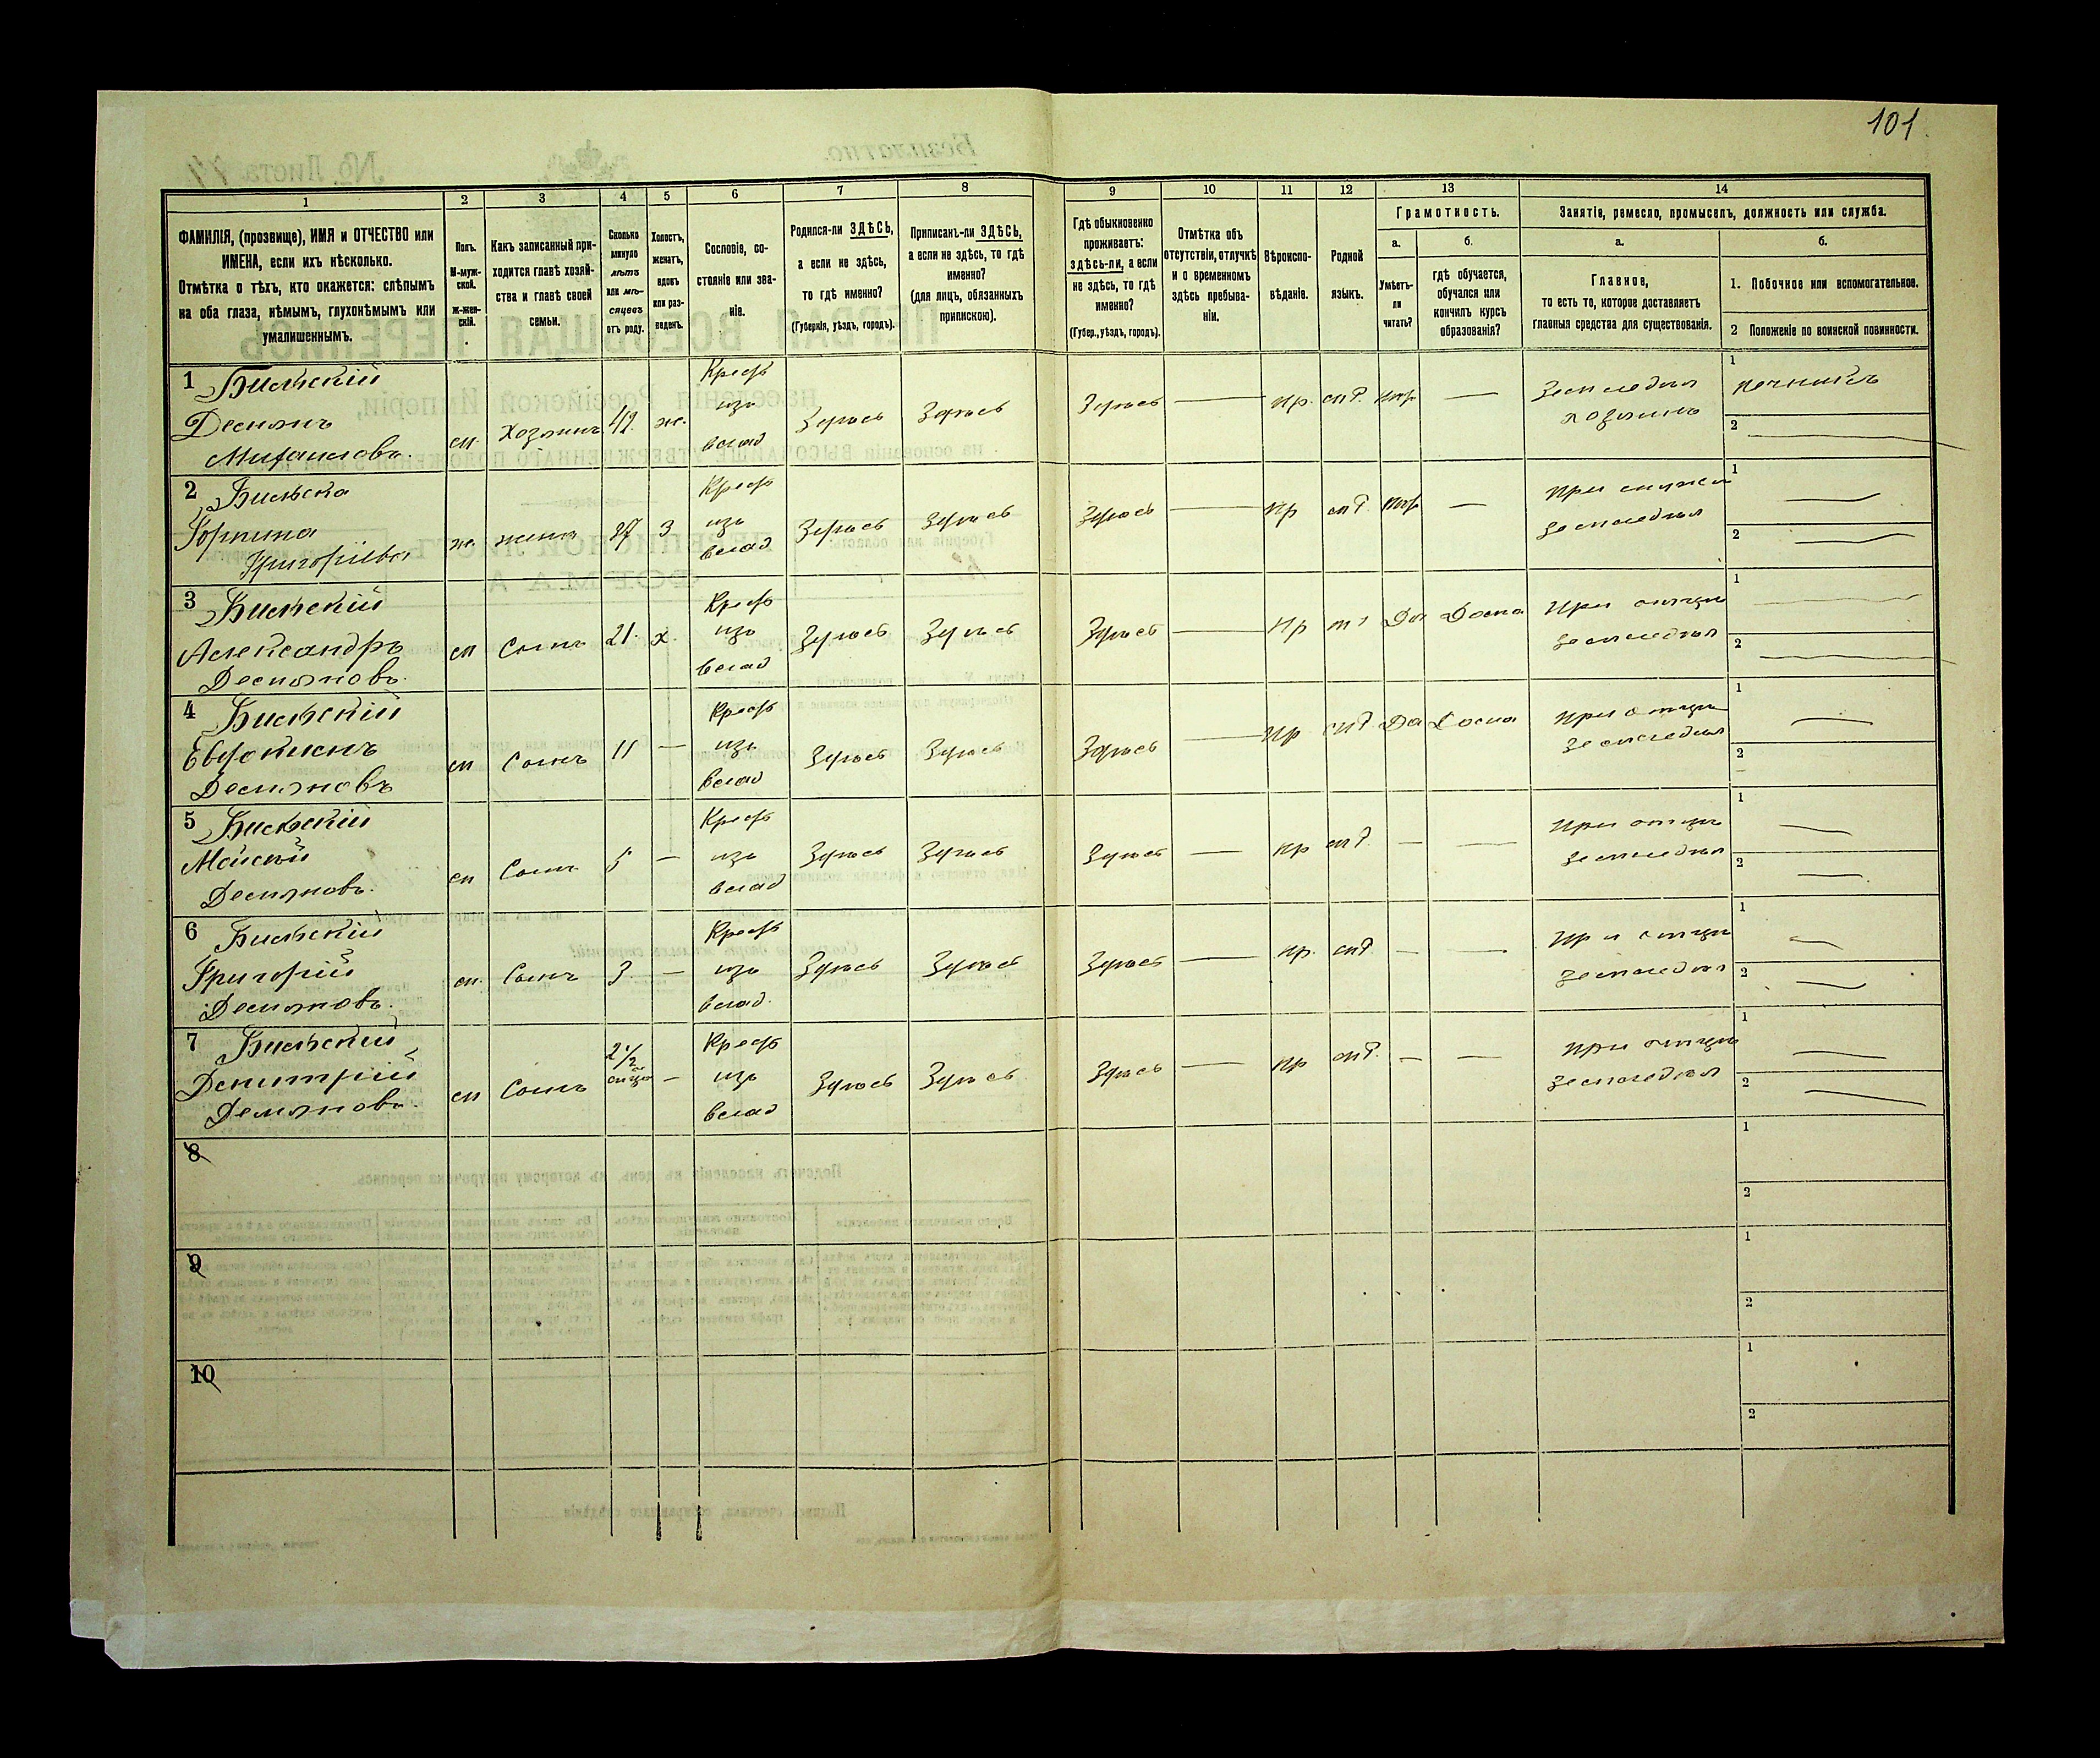 101.
1
2
3
4
5
6
7
8
9
10
11
12
13
14
ФАМИЛІЯ, (прозвище), ИМЯ и ОТЧЕСТВО или
ИМЕНА, если ихъ нѣсколько.
Отмѣтка о тѣхъ, кто окажется: слѣпымъ
на оба глаза, нѣмымъ, глухонѣмымъ или
умалишеннымъ.
Полъ.
М-муж-
ской.
ж-жен-
скій.
Какъ записанный при-
ходится главѣ хозяй-
ства и главѣ своей
семьи.
Сколько
минуло
лѣтъ
или мѣ-
сяцевъ
отъ роду.
Холостъ,
женатъ,
вдовъ
или раз-
веденъ.
Сословіе, со-
стояніе или зва-
ніе.
Родился-ли ЗДѢСЬ,
а если не здѣсь,
то гдѣ именно?
(Губернія, уѣздъ, городъ).
Приписанъ-ли ЗДѢСЬ,
а если не здѣсь, то гдѣ
именно?
(для лицъ, обязанныхъ
припискою).
Гдѣ обыкновенно
проживаетъ:
здѣсь-ли, а если
не здѣсь, то гдѣ
именно?
(Губер., уѣздъ, городъ).
Отмѣтка объ
отсутствіи, отлучкѣ
и о временномъ
здѣсь пребыва-
ніи.
Вѣроиспо-
вѣданіе.
Родной
языкъ.
Грамотность.
а.
Умѣетъ-
ли
читать?
б.
гдѣ обучается,
обучался или
кончилъ курсъ
образованія?
Занятіе, ремесло, промыселъ, должность или служба.
а.
Главное,
то есть то, которое доставляетъ
главныя средства для существованія.
б.
1. Побочное или вспомогательное.
2 Положеніе по воинской повинности.
1 Бильскій
Демянъ
Михаиловъ.
м. Хозяинъ 42. ж.
Крест
изъ
влад
Здѣсь Здѣсь Здѣсь — пр. мл. нтр —
Землєдѣл
хозяинъ
1 печникъ
2
2 Бильска
Горпина
Григоріева
ж. жена 37 З
Крест
изъ
влад
Здѣсь Здѣсь Здѣсь — пр мл нтр —
При мужѣ
землєдѣл
1
2
3 Бильскій
Александръ
Демяновъ.
м Сынъ 21. х.
Крест
изъ
влад
Здѣсь Здѣсь Здѣсь — пр мл Да Дома
При отцѣ
землєдѣл
1
2
4 Бильскій
Евдокимъ
Демяновъ
м Сынъ 11 —
Крест
изъ
влад
Здѣсь Здѣсь Здѣсь — пр мл Да Дома
При отцѣ
землєдѣл
1
2
5 Бильскій
Мойсей
Демяновъ.
м Сынъ 5 —
Крест
изъ
влад
Здѣсь Здѣсь Здѣсь — пр мл. — —
При отцѣ
землєдѣл
1
2
6 Бильскій
Григорій
Демяновъ.
м. Сынъ 3. —
Крест
изъ
влад.
Здѣсь Здѣсь Здѣсь — пр. мл — —
При отцѣ
землєдѣл
1
2
7 Бильскій
Демитрій
Демяновъ.
м Сынъ 2 1/2 —
Крест
изъ
влад
Здѣсь Здѣсь Здѣсь — пр мл. — —
При отцѣ
землєдѣл
1
2
8
1
2
9
1
2
10
1
2